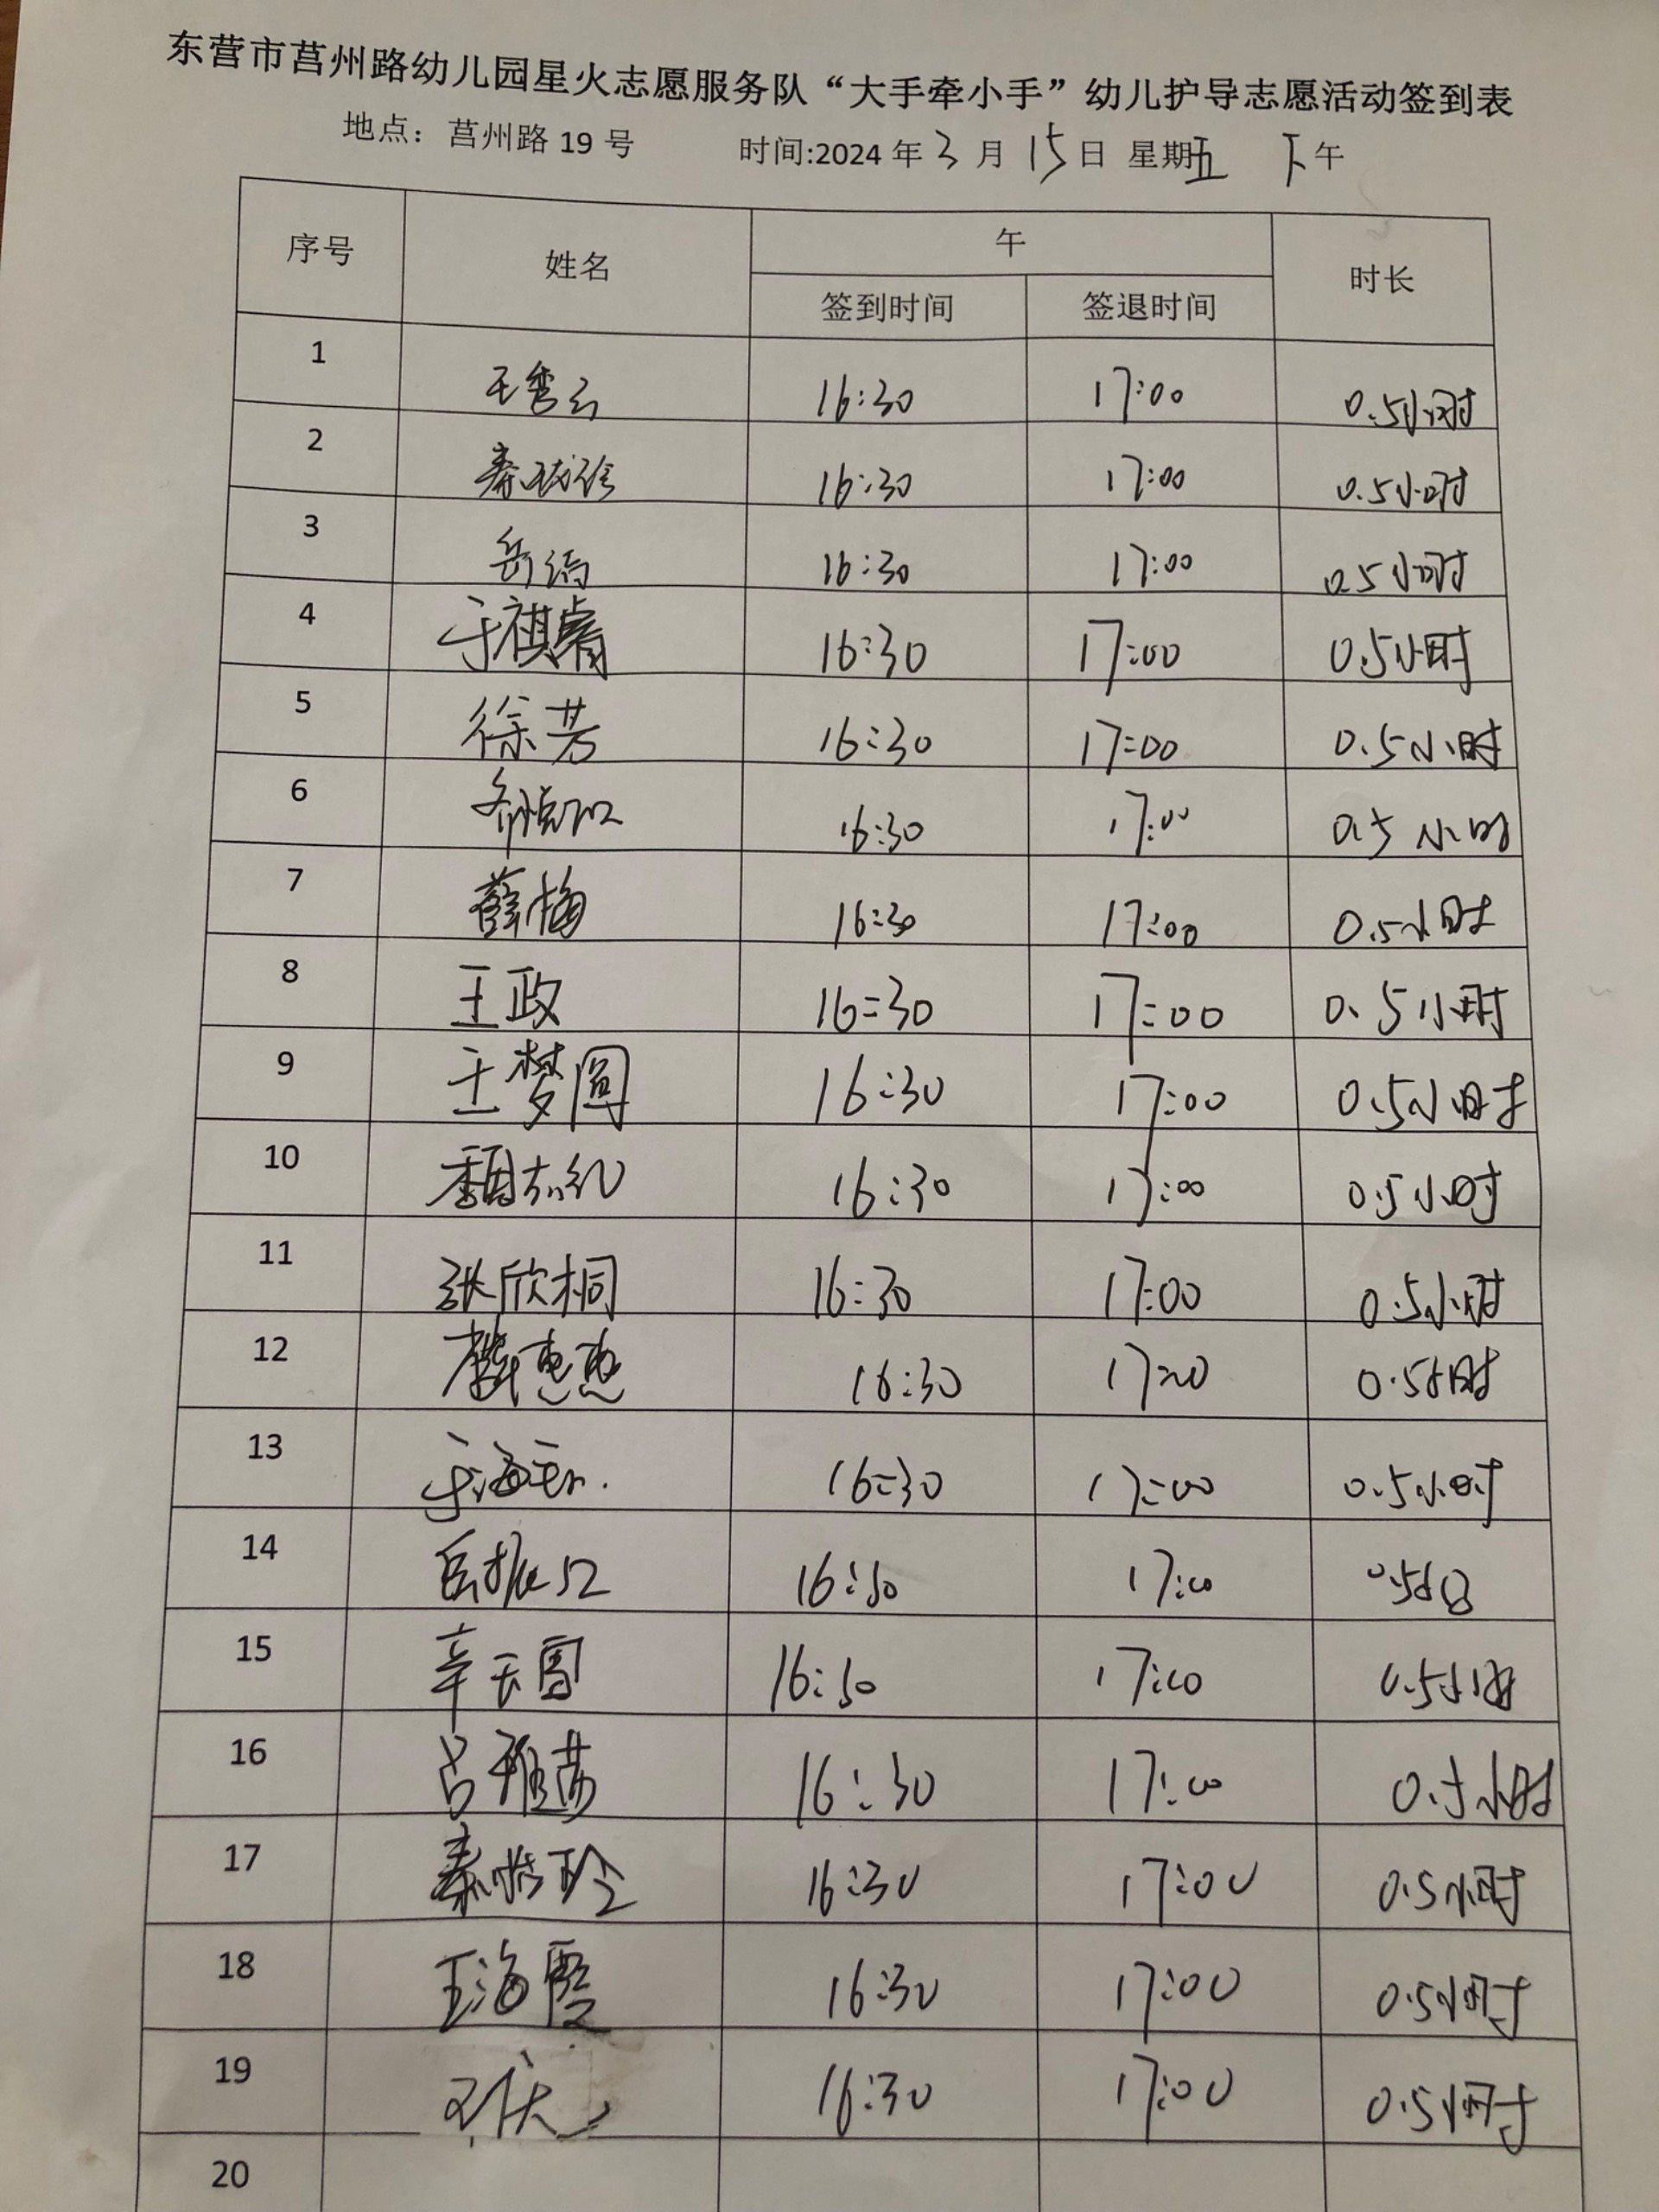 东营市莒州路幼儿园星火志愿服务队“大手牵小手”幼儿护导志愿活动签到表
地点：莒州路 19 号 时间:2024 年 3 月 15 日 星期五 下午
序号 姓名 午 时长
签到时间 签退时间
1 王秀云 16:30 17:00 0.5小时
2 秦 16:30 17:00 0.5小时
3 岳 16:30 17:00 0.5小时
4 于祺睿 16:30 17:00 0.5小时
5 徐芳 16:30 17:00 0.5小时
6 16:30 17:00 0.5小时
7 薛梅 16:30 17:00 0.5小时
8 王政 16:30 17:00 0.5小时
9 王梦圆 16:30 17:00 0.5小时
10 魏 16:30 17:00 0.5小时
11 张欣桐 16:30 17:00 0.5小时
12 惠惠 16:30 17:00 0.5小时
13 于海 16:30 17:00 0.5小时
14 16:30 17:00 0.5小时
15 辛 16:30 17:00 0.5小时
16 吕雅茹 16:30 17:00 0.5小时
17 秦 玲 16:30 17:00 0.5小时
18 王海霞 16:30 17:00 0.5小时
19 16:30 17:00 0.5小时
20